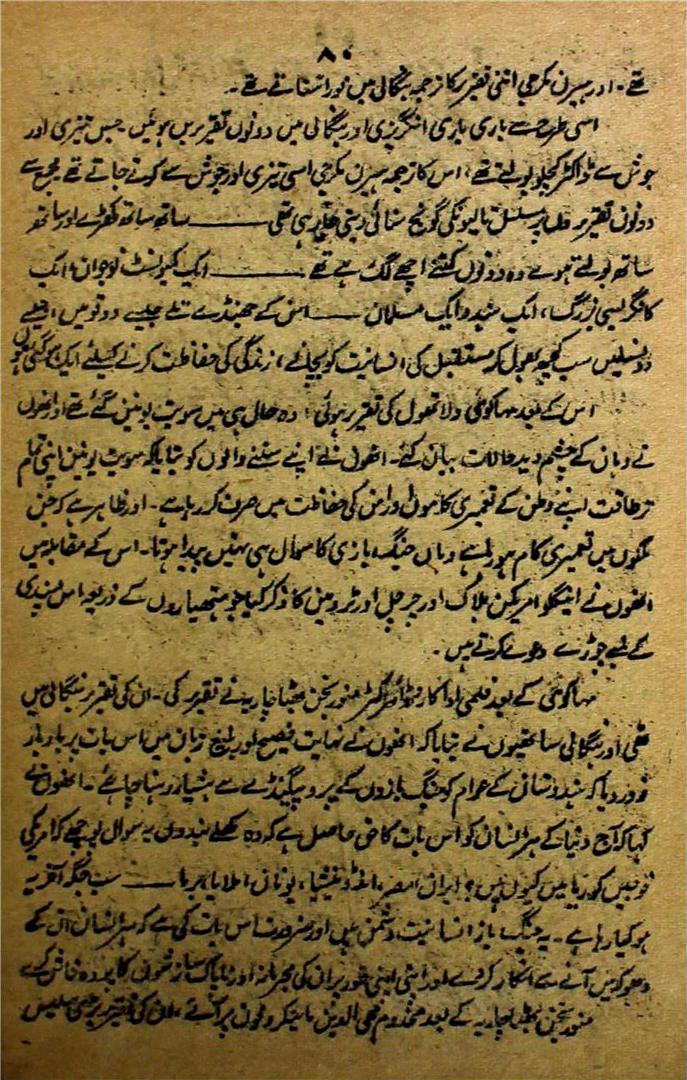 ۸۰
تھے۔ اور ہیرن مکرجی اتنی تقریر کا ترجمہ بنگالی میں فوراً سناتے تھے۔
اسی طرح سے باری باری انگریزی اور بنگالی میں دونوں تقریریں ہوئیں۔ جس تیزی اور
جوش سے ڈاکٹر کچلو بولتے تھے، اس کا ترجمہ ہیرن مکرجی اسی تیزی اور جوش سے کرتے جاتے تھے مجمع سے
دونوں تقریروں پر مسلسل تالیونکی گونج سنائی دیتی جا رہی تھی ــــــ ساتھ ساتھ کھڑے اور ساتھ
ساتھ بولتے ہوئے وہ دونوں کتنے اچھے لگ رہے تھے ــــــ ایک کمیونسٹ نوجوان، ایک
کانگریسی بزرگ، ایک ہندو ایک مسلمان ــــ امن کے جھنڈے تلے جیسے دو قومیں،
دو نسلیں سب کچھ بھول کر مستقبل کی انسانیت کو بچانے، زندگی کی حفاظت کرنے کیلئے ایک ہو گئی ہوں
اس کے بعد مہاکوی ولاتھول کی تقریر ہوئی، وہ حال ہی میں سویت یونین گئے تھے اور انھوں
نے وہاں کے چشم دید حالات بیان کئے۔ انھوں نے اپنے سننے والوں کو بتایا کہ سویت یونین اپنی تمام
تر طاقت اپنے وطن کے تعمیری کاموں و امن کی حفاظت میں صرف کر رہا ہے۔ اور ظاہر ہے کہ جن
ملکوں میں تعمیری کام ہو رہا ہے وہاں جنگ بازی کا سوال ہی نہیں پیدا ہوتا۔ اس کے مقابلہ میں
انھوں نے اینگلو امریکن بلاک اور چرچل اور ٹرومین کا ذکر کیا جو ہتھیاروں کے ذریعہ امن پسندی
کے لمبے چوڑے دعوے کرتے ہیں۔
مہاکوی کے بعد فلمی اداکار منورنجن بھٹاچاریہ نے تقریر کی۔ ان کی تقریر بنگالی میں
تھی اور بنگالی ساتھیوں نے بتایا کہ انھوں نے نہایت فصیح اور بلیغ زبان میں اس بات پر بار بار
زور دیا کہ ہندوستان کے عوام کو جنگ بازوں کے پروپیگنڈے سے ہشیار رہنا چاہئے۔ انھوں نے
کہا کہ آج دنیا کے ہر انسان کو اس بات کا حق حاصل ہے کہ وہ کھلے بندوں یہ سوال پوچھے کہ امریکی
فوجیں کوریا میں کیوں ہیں؟ ایران، مصر، انڈونیشیا، یونان، ملایا، برما ــــ سب جگہ آخر یہ
ہو کیا رہا ہے۔ یہ جنگ باز انسانیت دشمن ہیں اور ضرورت اس بات کی ہے کہ ہر انسان ان کے
دھوکہ میں آنے سے انکار کر دے اور اپنی اپنی طور پر ان کی مجرمانہ اور ناپاک سازشوں کا پردہ فاش کرے
منورنجن بھٹاچاریہ کے بعد مخدوم محی الدین مائیکروفون پر آئے، ان کی تقریر بڑی سلیس